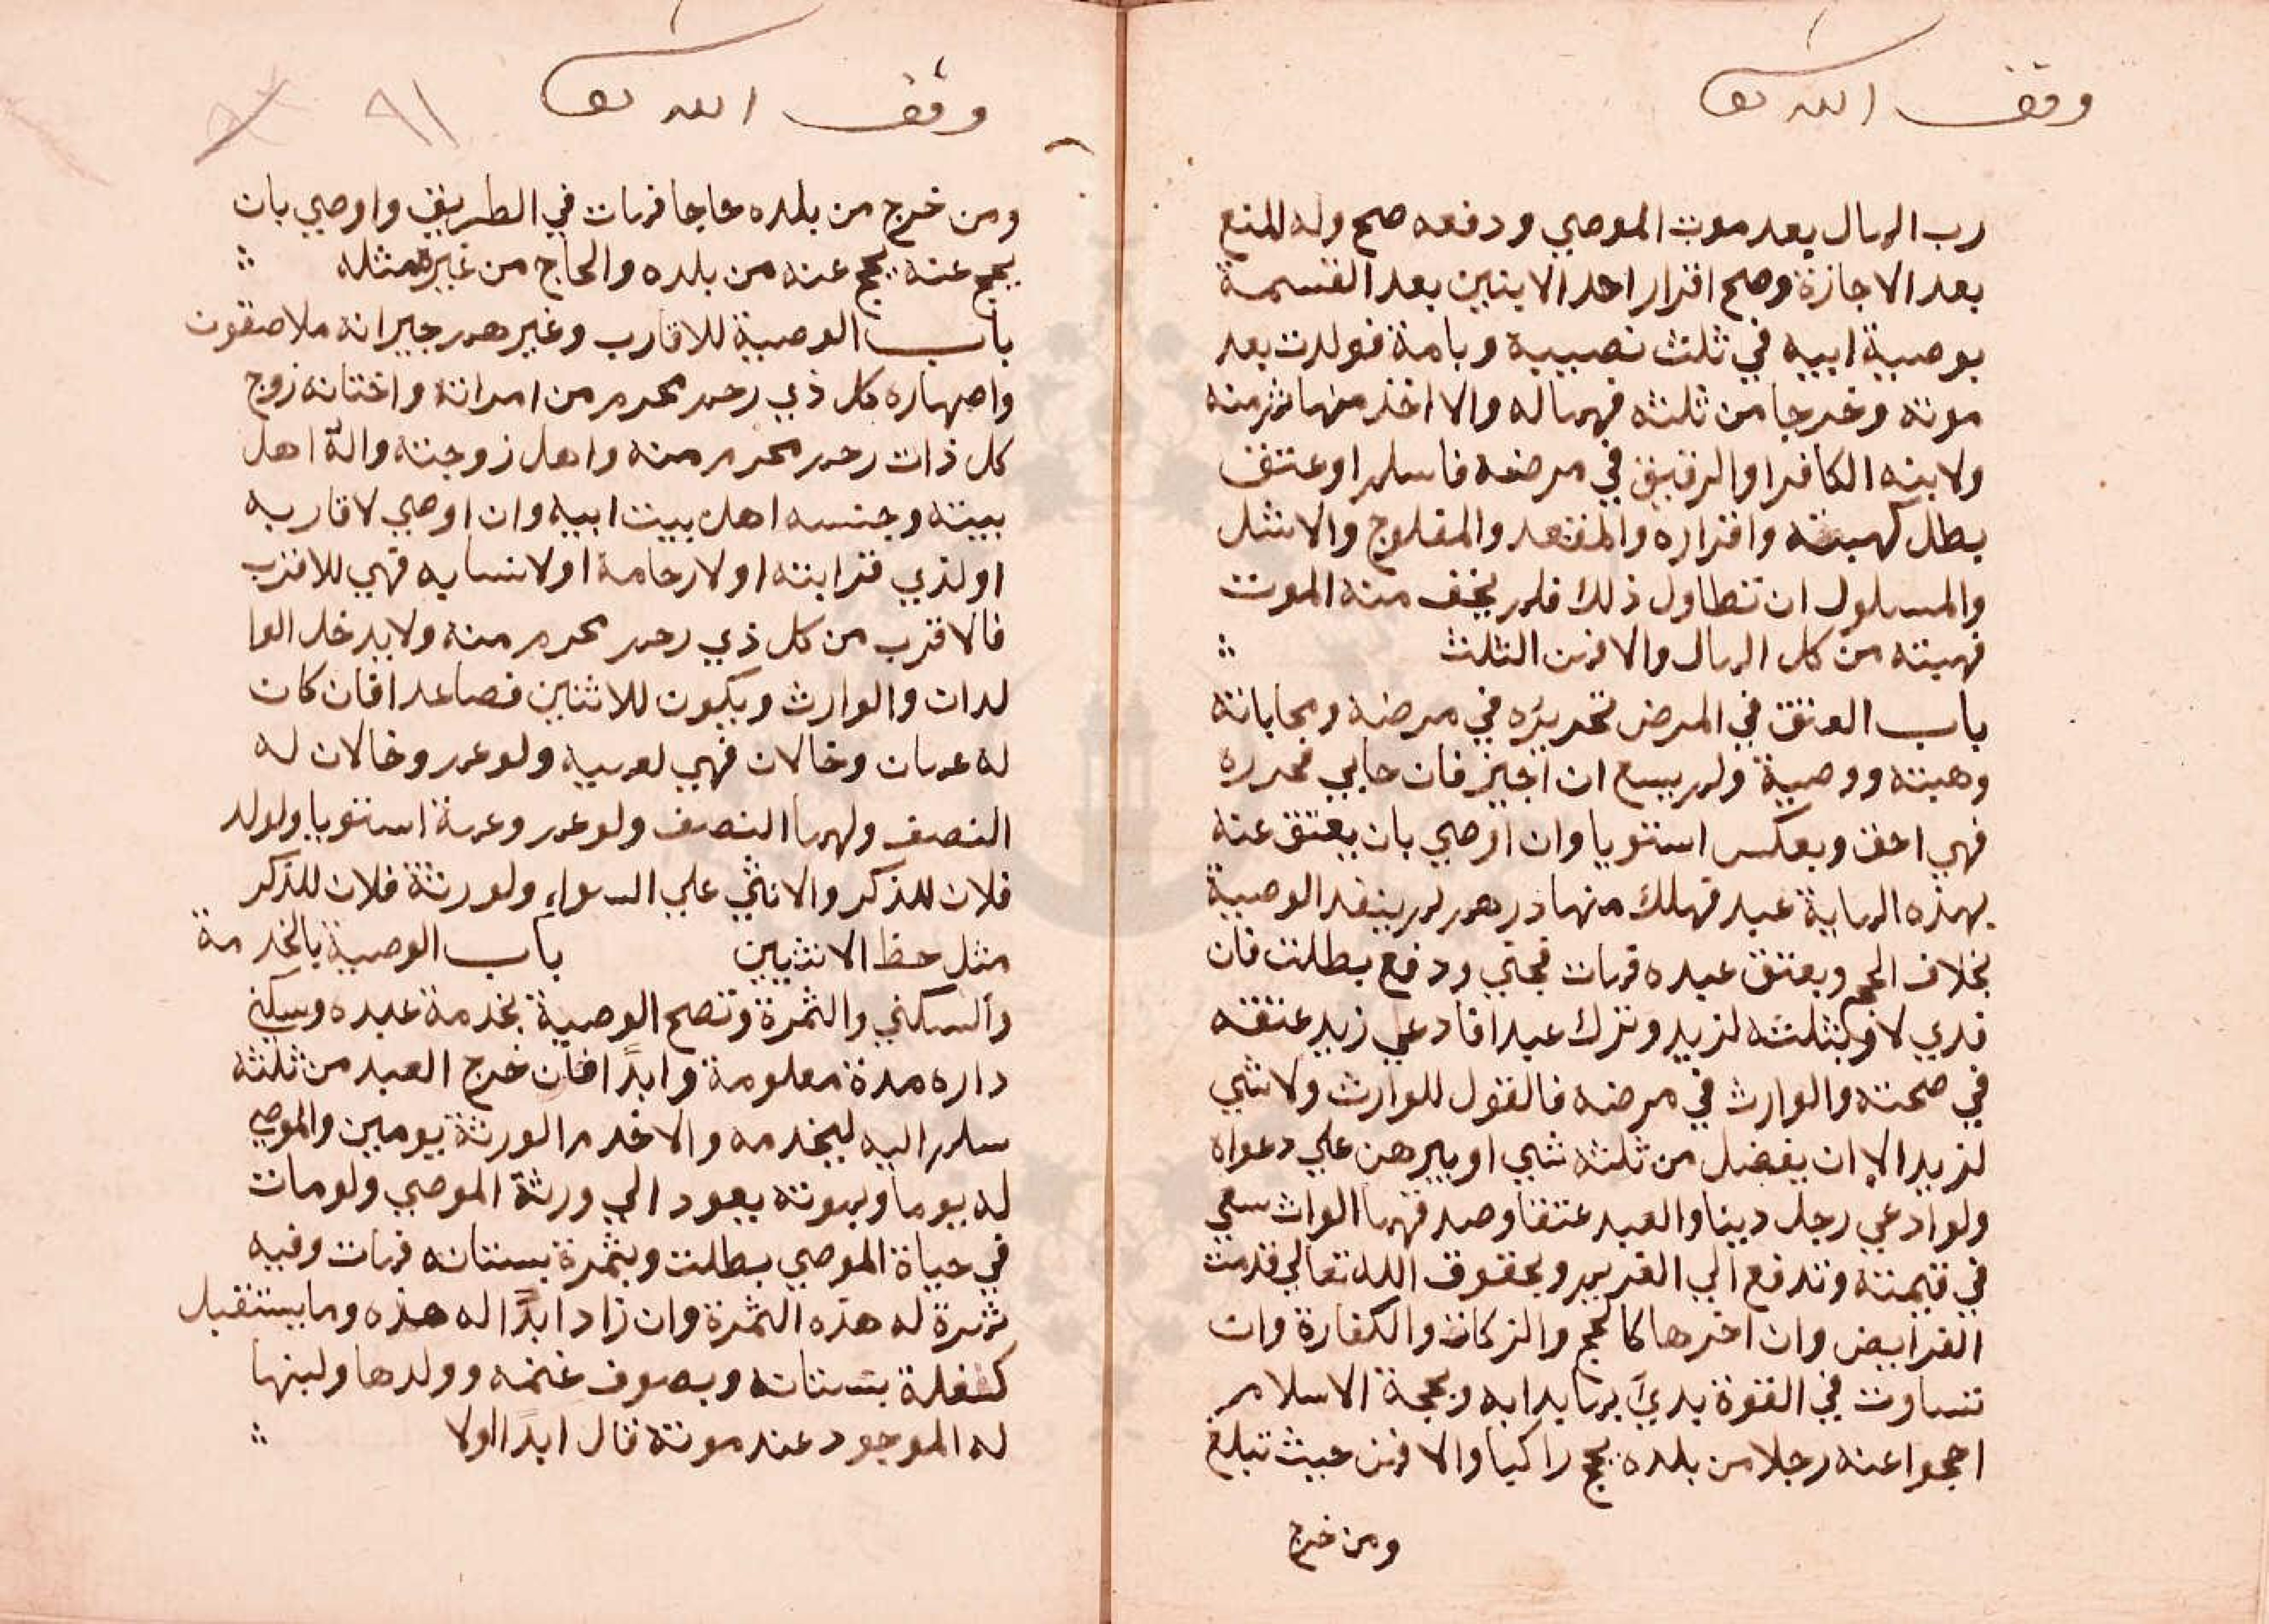 وقف الله تعا
رب المال بعد موت الموصي ودفعه صح وله المنع
بعد الاجازة وصح اقرار احد الابنين بعد القسمة
بوصية ابيه في ثلث نصيبه وبامة فولدت بعد
موته وخرجا من ثلثه فهما له والا اخذ منها ثم منه
ولابنه الكافر او الرقيق في مرضه فاسلم او عتق
بطل كهبته واقراره والمقعد والمفلوج والاشل
والمسلول ان تطاول ذلك فلم يخف منه الموت
فهبته من كل المال والا فمن الثلث
باب العتق في المرض تحريره في مرضه ومحاباته
وهبته ووصية ولم يسع ان اجيز فان حابي فحرره
فهي احق وبعكس استويا وان اوصي بان يعتق عنه
بهذه الماية عبد فهلك منها درهم لم ينفد الوصية
بخلاف الحج وبعتق عبده فمات فجني ودفع بطلت فان
فدي لا وبثلثه لزيد وترك عبدا فادعي زيد عتقه
في صحته والوارث في مرضه فالقول للوارث ولا شي
لزيد الا ان يفضل من ثلثه شي او يبرهن علي دعواه
ولو ادعي رجل دينا والعبد عتقا وصدقهما الواث سعي
في قيمته وتدفع الي الغريم وبحقوق الله تعالي قدمت
الفرايض وان اخرها كالحج والزكاة والكفارة وان
تساوت في القوة بدي بما بدا به وبحجة الاسلام
احجوا عنه رجلا من بلده يحج راكبا والا فمن حيث تبلغ
ومن خرج
وقف الله تعا
٩١
ومن خرج من بلده حاجا فمات في الطريق واوصي بان
يحج عنه يحج عنه من بلده والحاج من غيره مثله
باب الوصية للاقارب وغيرهم جيرانه ملاصقون
واصهاره كل ذي رحم محرم من امراته واختانه زوج
كل ذات رحم محرم منه واهل زوجته واله اهل
بيته وجنسه اهل بيت ابيه وان اوصي لاقاربه
او لذي قرابته او لارحامه او لانسابه فهي للاقرب
فالاقرب من كل ذي رحم محرم منه ولا يدخل الوا
لدان والوارث ويكون للاثنين فصاعدا فان كان
له عمان وخالان فهي لعميه ولو عم وخالان له
النصف ولهما النصف ولو عم وعمة استويا ولولد
فلان للذكر والانثي علي السواء ولورثة فلان للذكر
مثل حظ الانثيين باب الوصية بالخدمة
والسكني والثمرة وتصح الوصية بخدمة عبده وسكني
داره مدة معلومة وابدًا فان خرج العبد من ثلثه
سلم اليه ليخدمه والا خدم الورثة يومين والموصي
له يوما وبموته يعود الي ورثة الموصي ولو مات
في حياة الموصي بطلت وبثمرة بستانه فمات وفيه
ثمرة له هذه الثمرة وان زاد ابدًا له هذه وما يستقبل
كغلة بستانه وبصوف غنمه وولدها ولبنها
له الموجود عند موته قال ابدًا اولا